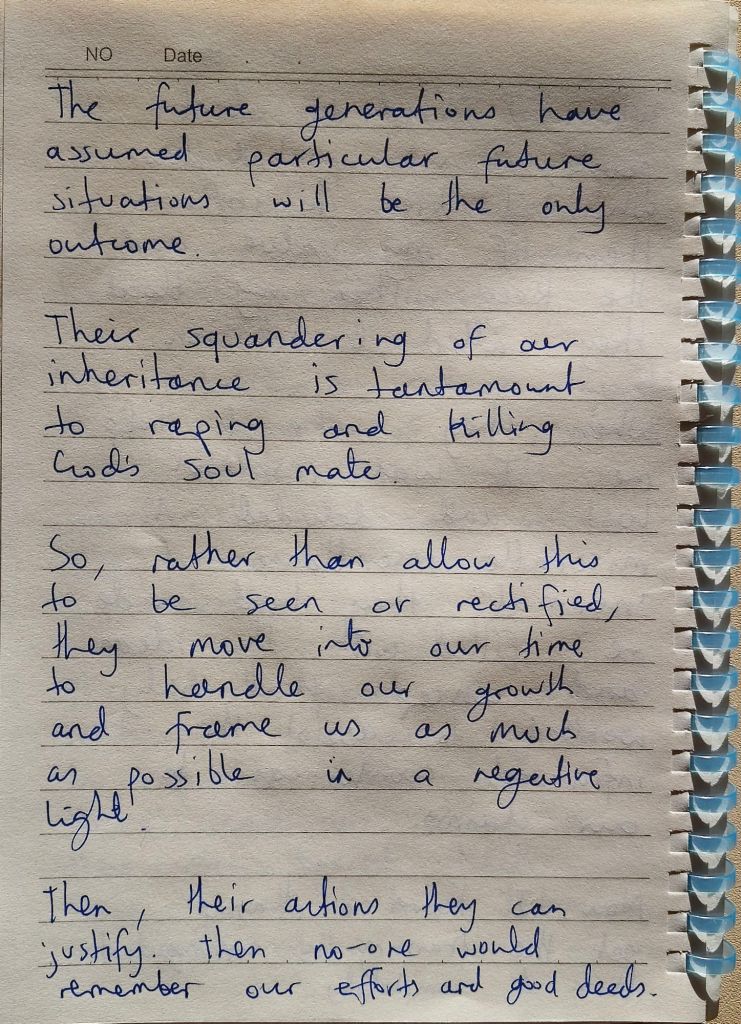 NO Date
The future generations have
assumed particular future
situations will be the only
outcome.
Their squandering of our
inheritance is tantamount
to raping and killing
God's soul mate.
So, rather than allow this
to be seen or rectified,
they move into our time
to handle our growth
and frame us as much
as possible in a negative
light.
Then, their actions they can
justify. then no-one would
remember our efforts and good deeds.